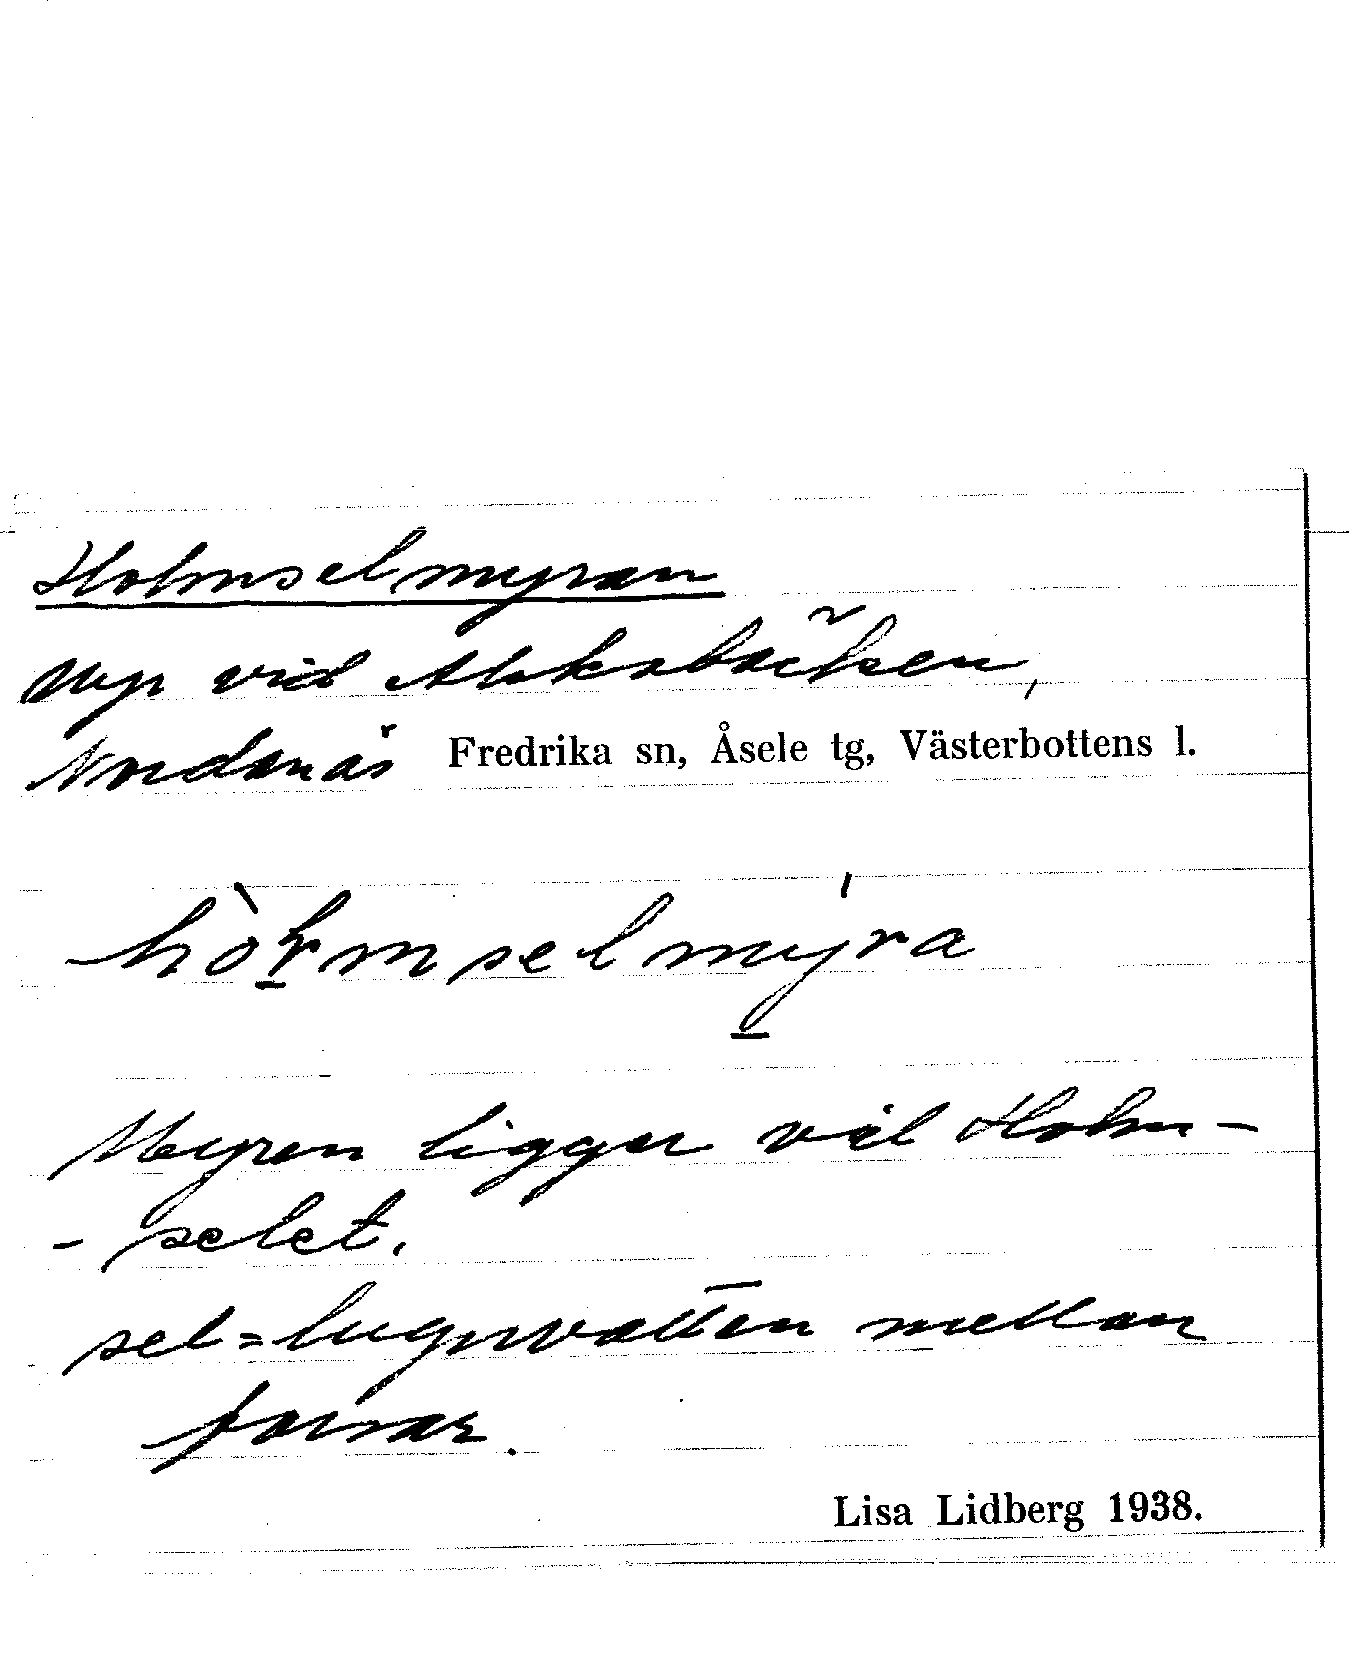 Holmselmyran
Myr vid Alskabäcken,
Nordanås Fredrika sn, Åsele tg, Västerbottens l.
hòlmselmýra
Myren ligger vid Holm-
- selet.
sel = lugnvatten mellan
forsar.
Lisa Lidberg 1938.